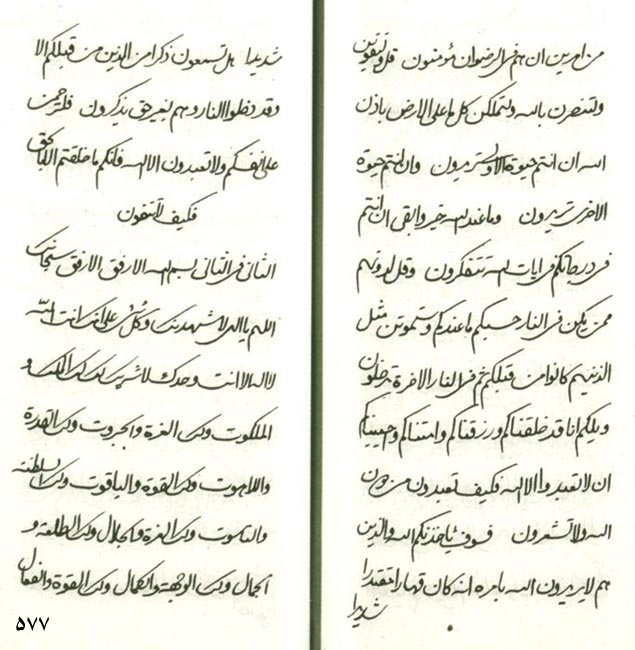 من احد من ان هم في الرضوان مؤمنون قل و لتتقون
ولتنصرن بالله ولتملكن كل ما على الارض باذن
الله ان انتم حيوة الاولى تريدون وان انتم حيوة
الاخرى تريدون وما عند الله خير وابقى ان انتم
في درجاتكم في ايات الله تتفكرون وقل لدونهم
ممن يكن في النار حسبكم ما عندكم وستموتن مثل
الذينهم كانوا من قبلكم ثم في النار الاخرة تدخلون
ويلكم انا قد خلقناكم ورزقناكم وامتناكم وحييناكم
ان لا تعبدوا الا الله فكيف تعبدون من دون
الله ولا تشعرون فسوف ناخذنكم الله والذين
هم لا يريدون الله بامره انه كان قهارا مقتدرا
شديدا
شديدا هل تسمعون ذكرا من الذين من قبلكم الا
وقد دخلوا النار وهم بغير حق يذكرون فلترحمن
على انفسكم ولا تعبدون الا الله فانكم ما خلقتم الا بالحق
فكيف لا تتقون
الثاني في الثاني بسم الله الارفق الارفق سبحانك
اللهم يا الهي لاشهدنك وكل شيء على انك انت الله
لا اله الا انت وحدك لا شريك لك لك الملك و
الملكوت ولك العزة والجبروت ولك القدرة
واللاهوت ولك القوة والياقوت ولك السلطنة
والناسوت ولك العزة والجلال ولك الطلعة و
الجمال ولك الوجهة والكمال ولك القوة والفعال
۵۷۷